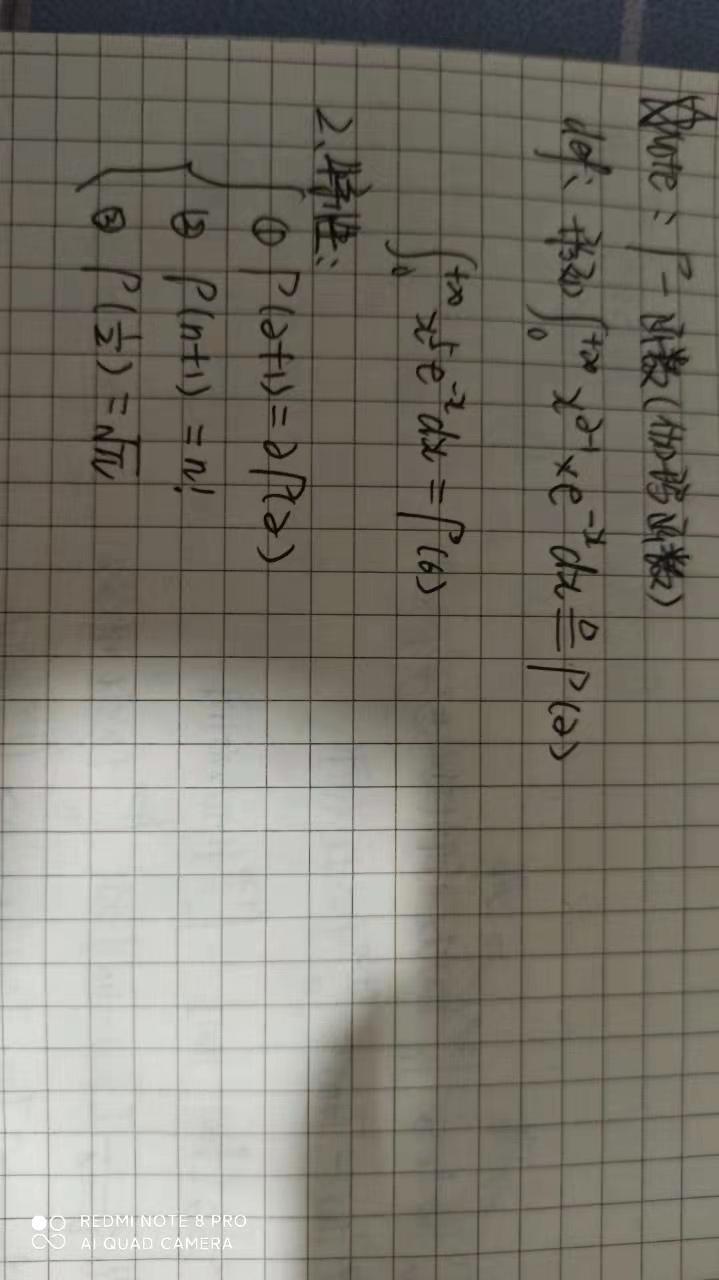 ☆Note: Γ-函数(伽玛函数)
def: 形如 ∫₀^{+∞} x^{α-1} × e^{-x} dx ≜ Γ(α)
∫₀^{+∞} x⁵ e^{-x} dx = Γ(6)
2. 特性:
① Γ(α+1) = αΓ(α)
② Γ(n+1) = n!
③ Γ(1/2) = √π
REDMI NOTE 8 PRO
AI QUAD CAMERA